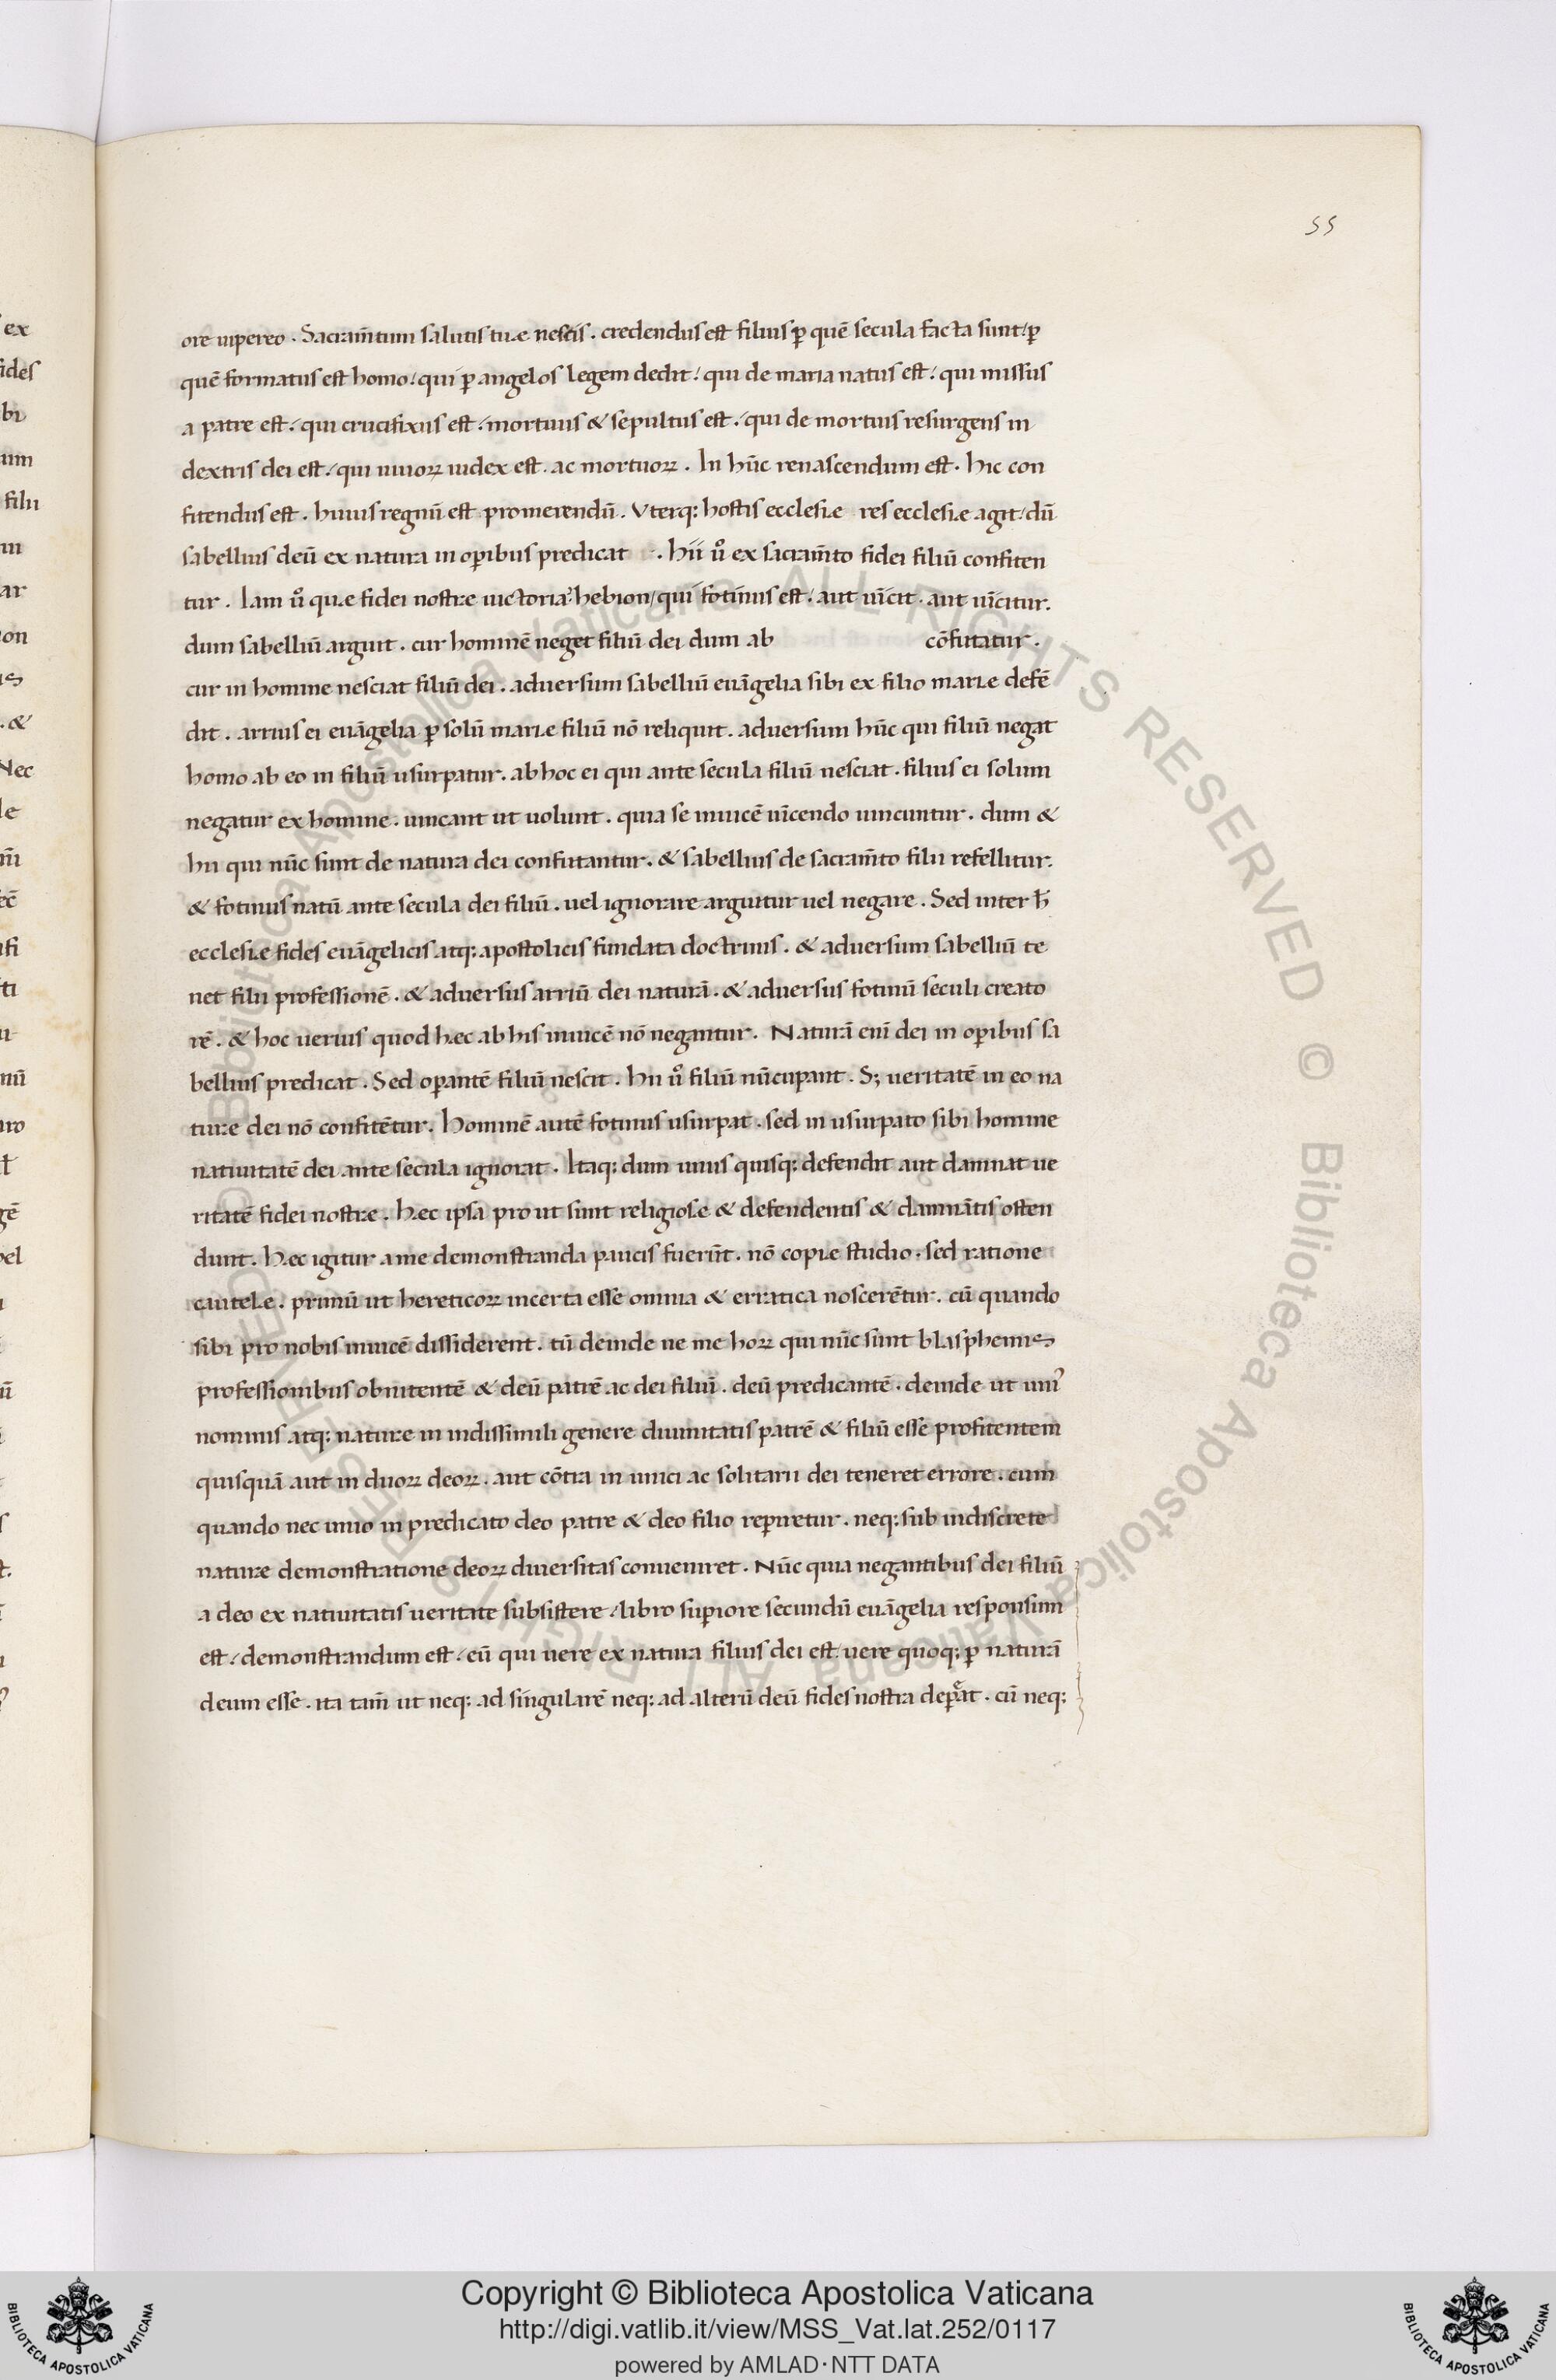 55
ore uipereo . Sacram̄tum salutis tuæ nescis . credendus est filius ꝑ quē secula facta sunt / ꝑ
quē formatus est homo / qui ꝑ angelos legem dedit / qui de maria natus est / qui missus
a patre est / qui crucifixus est / mortuus & sepultus est / qui de mortuis resurgens in
dextris dei est / qui uiuoꝝ iudex est . ac mortuoꝝ . In hūc renascendum est . hic con
fitendus est . huius regnū est promerendū . Uterq: hostis ecclesiæ res ecclesiæ agit / dū
sabellius deū ex natura in oꝑibus predicat . hii ůo ex sacram̄to fidei filiū confiten
tur . Iam ůo quæ fidei nostræ uictoria? hebion / qui fotinus est / aut uīcit . aut uīcitur.
dum sabelliū arguit . cur hominē neget filiū dei dum ab cōfutatur .
cur in homine nesciat filiū dei . aduersum sabelliū euāgelia sibi ex filio mariæ defē
dit . arrius ei euāgelia ꝑ solū mariæ filiū nō reliquit . aduersum hūc qui filiū negat
homo ab eo in filiū usurpatur . ab hoc ei qui ante secula filiū nesciat . filius ei solum
negatur ex homine . uincant ut uolunt . quia se inuicē uīcendo uincuntur . dum &
hii qui nūc sunt de natura dei confutantur . & sabellius de sacram̄to filii refellitur.
& fotinus natū ante secula dei filiū . uel ignorare arguitur uel negare . Sed inter h̄
ecclesiæ fides euāgelicis atq: apostolicis fundata doctrinis . & aduersum sabelliū te
net filii professionē . & aduersus arriū dei naturā . & aduersus fotinū seculi creato
rē . & hoc uerius quod hæc ab his inuicē nō negantur . Naturā eni dei in oꝑibus sa
bellius predicat . Sed oꝑantē filiū nescit . hii ůo filiū nūcupant . S; ueritatē in eo na
turæ dei nō confitētur . Hominē autē fotinus usurpat . sed in usurpato sibi homine
natiuitatē dei ante secula ignorat . Itaq: dum unus quisq: defendit aut damnat ue
ritatē fidei nostræ . hæc ipsa prout sunt religiosæ & defendentis & damnātis osten
dunt . hæc igitur a me demonstranda paucis fuerūt . nō copiæ studio . sed ratione
cautelæ . primū ut hereticoꝝ incerta esse omnia & erratica noscerētur . cū quando
sibi pro nobis inuicē dissiderent . tū deinde ne me hoꝝ qui nūc sunt blasphemis
professionibus obnitentē & deū patrē ac dei filiū . deū predicantē . deinde ut uni'
nominis atq: naturæ in indissimili genere diuinitatis patrē & filiū esse profitentem
quisquā aut in duoꝝ deoꝝ . aut cōtra in unici ac solitarii dei teneret errore . cum
quando nec unio in predicato deo patre & deo filio reꝑiretur . neq: sub indiscrete
naturæ demonstratione deoꝝ diuersitas conueniret . Nūc quia negantibus dei filiū
a deo ex natiuitatis ueritate subsistere / libro suꝑiore secundū euāgelia responsum
est / demonstrandum est / eū qui uere ex natura filius dei est / uere quoq: ꝑ naturā
deum esse . ita tam̄ ut neq: ad singularē neq: ad alterū deū fides nostra deꝑeat . cū neq:
ex
fides
bi
um
filii
in
ar
ion
. &
Nec
de
Copyright © Biblioteca Apostolica Vaticana
http://digi.vatlib.it/view/MSS_Vat.lat.252/0117
powered by AMLAD·NTT DATA
BIBLIOTECA APOSTOLICA VATICANA
BIBLIOTECA APOSTOLICA VATICANA
© Biblioteca Apostolica Vaticana ALL RIGHTS RESERVED © Biblioteca Apostolica Vaticana ALL RIGHTS RESERVED